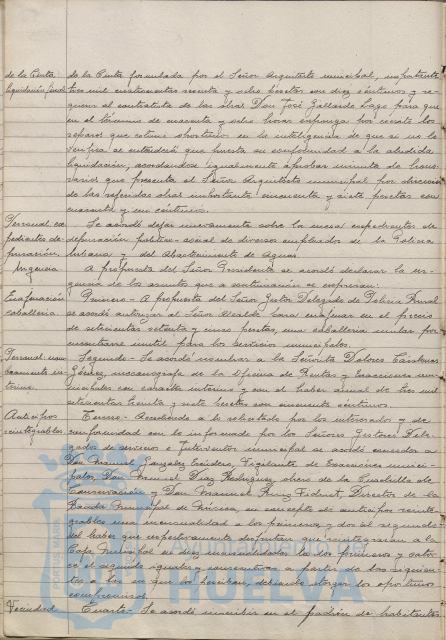 de la Cuenta
liquidación final
de la Cuenta formulada por el Señor Arquitecto municipal, importante
tres mil cuatrocientas sesenta y ocho pesetas con diez céntimos y re-
querir al contratista de las obras Don José Gallardo Lago para que
en el término de cuarenta y ocho horas exponga por escrito los
reparos que estime oportunos en la inteligencia de que si no lo
se entenderá que presta su conformidad a la aludida
liquidación, acordándose igualmente aprobar minuta de hono-
rarios que presenta el Señor Arquitecto municipal por dirección
de las referidas obras importante cincuenta y siete pesetas con
cuarenta y un céntimos.
Personal ex-
pedientes de-
puración
Se acordó dejar nuevamente sobre la mesa expedientes de
depuración político-social de diversos empleados de la Policía
Urbana y del Abastecimiento de Aguas.
Urgencia
A propuesta del Señor Presidente se acordó declarar la ur-
gencia de los asuntos que a continuación se expresan:
Enajenación
caballería
Primero.- A propuesta del Señor Gestor Delegado de Policía Rural
se acordó autorizar al Señor Alcalde para enajenar en el precio
de setecientas setenta y cinco pesetas, una caballería mular por
encontrarse inútil para los servicios municipales.
Personal nom-
bramiento in-
terina
Segundo.- Se acordó nombrar a la Señorita Dolores
Gómez, mecanógrafa de la Oficina de Rentas y Exacciones mu-
nicipales con carácter interino y con el haber anual de tres mil
setecientas treinta y siete pesetas con cincuenta céntimos.
Anticipos
reintegrables
Tercero.- Accediendo a lo solicitado por los interesados y de
conformidad con lo informado por los Señores Gestores Dele-
gados de servicio e Interventor municipal se acordó conceder a
Don Manuel González Escudero, Vigilante de Exacciones munici-
pales, Don Manuel Díaz Rodríguez obrero de la Cuadrilla de
Conservación y Don Manuel Ruiz Vidriet, Director de la
Banda Municipal de Música, en concepto de anticipos reinte-
grables una mensualidad a los primeros y dos al segundo
del haber que respectivamente disfrutan que reintegrarán a la
Caja Municipal en diez mensualidades la los primeros y cator-
ce el segundo iguales y consecutivas a partir de los siguien-
tes a las en que los perciban, debiendo otorgar los oportunos
compromisos.
Vecindad
Cuarto.- Se acordó inscribir en el padrón de habitantes
Ayuntamiento
HUELVA